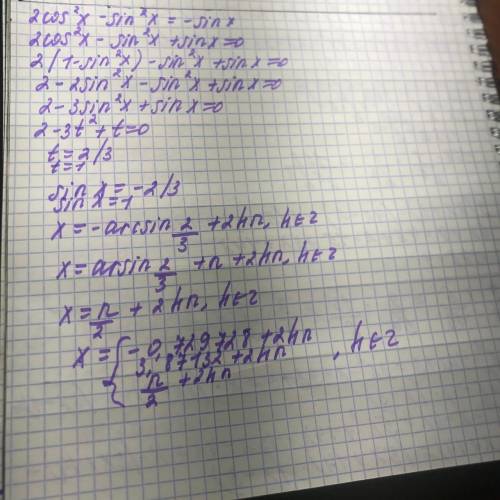 2cos²x - sin²x = -sin x
2cos²x - sin²x + sin x = 0
2(1-sin²x) - sin²x + sin x = 0
2 - 2sin²x - sin²x + sin x = 0
2 - 3sin²x + sin x = 0
2 - 3t² + t = 0
t = 2/3
t = 1
sin x = -2/3
sin x = 1
x = -arcsin 2/3 + 2kπ, k∈z
x = arsin 2/3 + π + 2kπ, k∈z
x = π/2 + 2kπ, k∈z
x = { -0,729728 + 2kπ
3,87132 + 2kπ , k∈z
π/2 + 2kπ